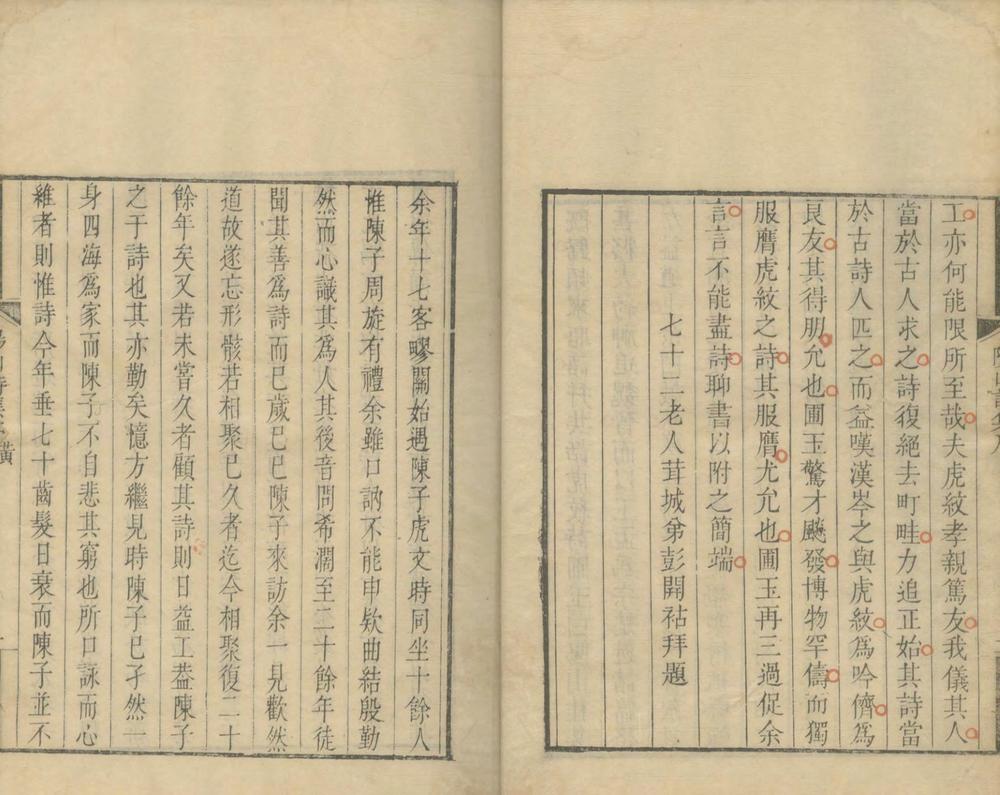 工亦何能限所至哉夫虎紋孝親篤友我儀其人
當於古人求之詩復絕去町畦力追正始其詩當
於古詩人匹之而益嘆漢岑之與虎紋爲吟儕爲
良友其得朋允也圃玉驚才颷發博物罕儔而獨
服膺虎紋之詩其服膺尤允也圃玉再三過促余
言言不能盡詩聊書以附之簡端
七十二老人茸城弟彭開祜拜題
余年十七客疁關始遇陳子虎文時同坐十餘人
惟陳子周旋有禮余雖口訥不能申欵曲結殷勤
然而心識其爲人其後音問希濶至二十餘年徒
聞其善爲詩而已歲己巳陳子來訪余一見歡然
道故遂忘形骸若相聚已久者迄今相聚復二十
餘年矣又若未嘗久者顧其詩則日益工葢陳子
之于詩也其亦勤矣憶方繼見時陳子已孑然一
身四海爲家而陳子不自悲其窮也所口詠而心
維者則惟詩今年垂七十齒髮日衰而陳子並不